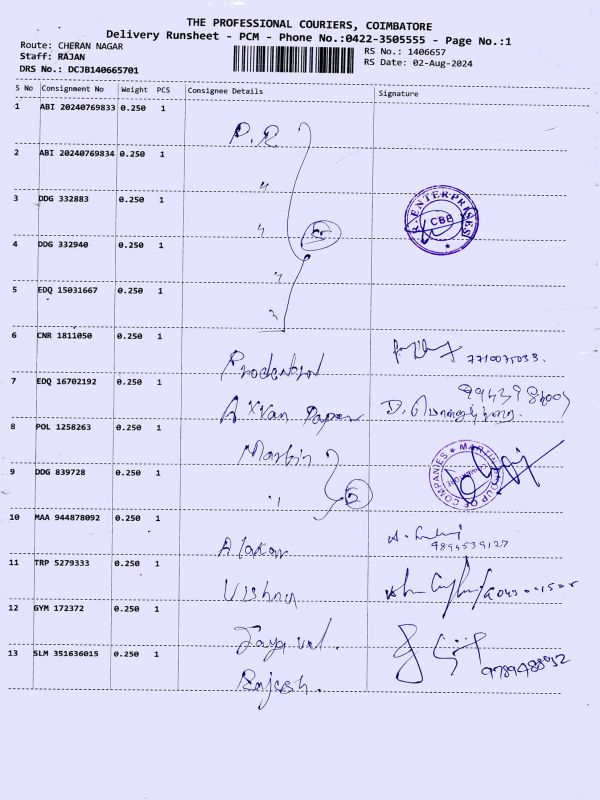 THE PROFESSIONAL COURIERS, COIMBATORE
Delivery Runsheet - PCM - Phone No.:0422-3505555 - Page No.:1
Route: CHERAN NAGAR
RS No.: 1406657
Staff: RAJAN
RS Date: 02-Aug-2024
DRS No.: DCJB140665701
S No Consignment No Weight PCS Consignee Details Signature
1 ABI 20240769833 0.250 1
P.R.
2 ABI 20240769834 0.250 1
"
3 DDG 332883 0.250 1
R. ENTERPRISES
CBE
"
4 DDG 332940 0.250 1
"
5 EDQ 15031667 0.250 1
6 CNR 1811050 0.250 1
7710075033.
7 EDQ 16702192 0.250 1
Paper
8 POL 1258263 0.250 1
Martin
MARTIN GROUP OF COMPANIES
9 DDG 839728 0.250 1
"
10 MAA 944878092 0.250 1
9894539127
11 TRP 5279333 0.250 1
Vishnu
12 GYM 172372 0.250 1
Jaya
13 SLM 351636015 0.250 1
Rajesh.